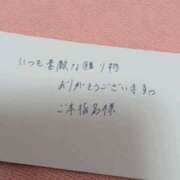 いつも素敵な贈り物
ありがとうございます
ご本指名様